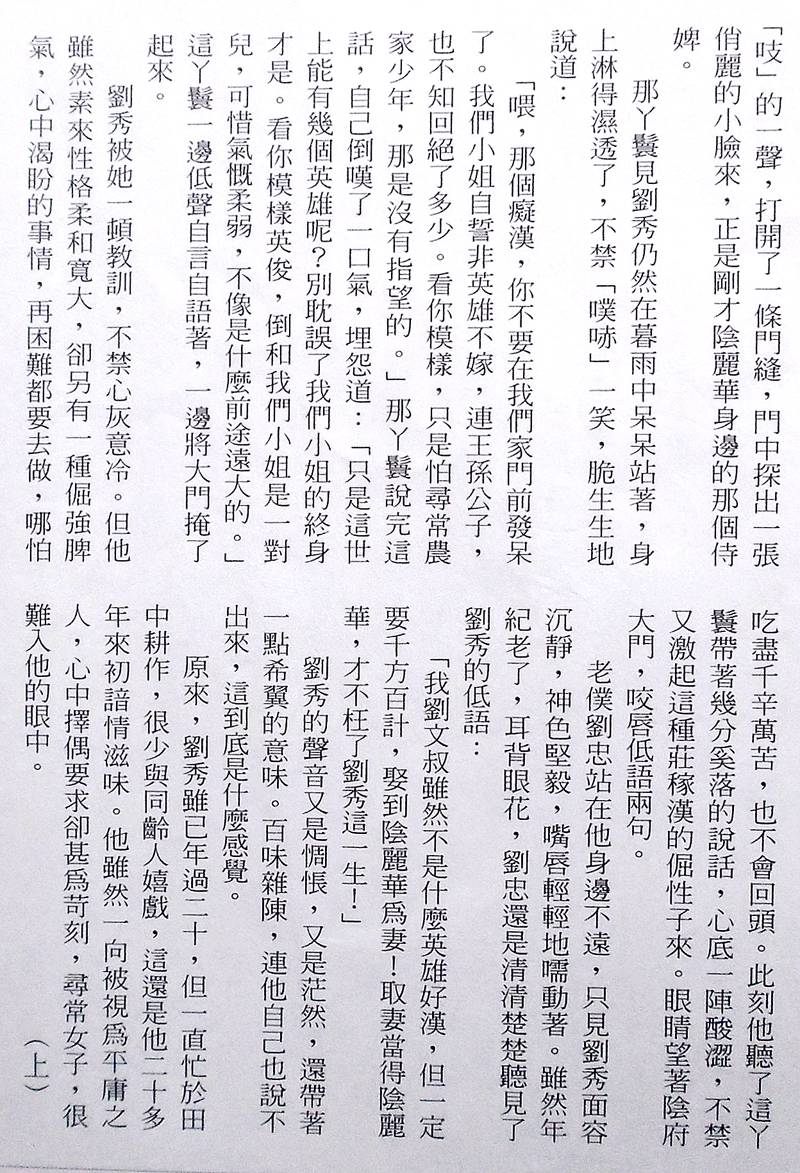 「吱」的一聲，打開了一條門縫，門中探出一張
俏麗的小臉來，正是剛才陰麗華身邊的那個侍
婢。
那丫鬟見劉秀仍然在暮雨中呆呆站著，身
上淋得濕透了，不禁「噗哧」一笑，脆生生地
說道：
「喂，那個癡漢，你不要在我們家門前發呆
了。我們小姐自誓非英雄不嫁，連王孫公子，
也不知回絕了多少。看你模樣，只是怕尋常農
家少年，那是沒有指望的。」那丫鬟說完這
話，自己倒嘆了一口氣，埋怨道：「只是這世
上能有幾個英雄呢？別耽誤了我們小姐的終身
才是。看你模樣英俊，倒和我們小姐是一對
兒，可惜氣慨柔弱，不像是什麼前途遠大的。」
這丫鬟一邊低聲自言自語著，一邊將大門掩了
起來。
劉秀被她一頓教訓，不禁心灰意冷。但他
雖然素來性格柔和寬大，卻另有一種倔強脾
氣，心中渴盼的事情，再困難都要去做，哪怕
吃盡千辛萬苦，也不會回頭。此刻他聽了這丫
鬟帶著幾分奚落的說話，心底一陣酸澀，不禁
又激起這種莊稼漢的倔性子來。眼睛望著陰府
大門，咬唇低語兩句。
老僕劉忠站在他身邊不遠，只見劉秀面容
沉靜，神色堅毅，嘴唇輕輕地嚅動著。雖然年
紀老了，耳背眼花，劉忠還是清清楚楚聽見了
劉秀的低語：
「我劉文叔雖然不是什麼英雄好漢，但一定
要千方百計，娶到陰麗華爲妻！取妻當得陰麗
華，才不枉了劉秀這一生！」
劉秀的聲音又是惆悵，又是茫然，還帶著
一點希翼的意味。百味雜陳，連他自己也說不
出來，這到底是什麼感覺。
原來，劉秀雖已年過二十，但一直忙於田
中耕作，很少與同齡人嬉戲，這還是他二十多
年來初諳情滋味。他雖然一向被視爲平庸之
人，心中擇偶要求卻甚爲苛刻，尋常女子，很
難入他的眼中。
（上）